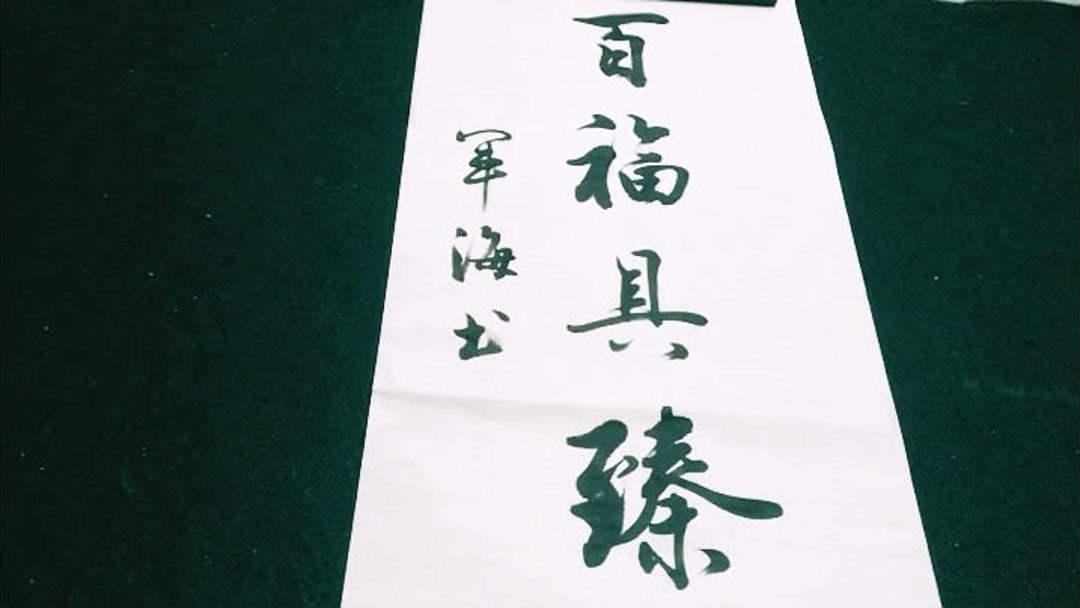 百福具臻
军海书